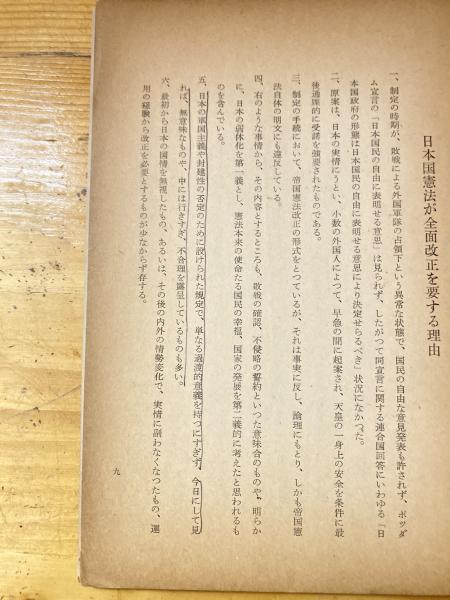 日本国憲法が全面改正を要する理由
一、制定の時期が、敗戦による外国軍隊の占領下という異常な状態で、国民の自由な意見発表も許されず、ポツダ
ム宣言の「日本国民の自由に表明せる意思」は見られず、したがつて同宣言に関する連合国回答にいわゆる「日
本国政府の形態は日本国民の自由に表明せる意思により決定せらるべき」状況になかつた。
二、原案は、日本の実情にうとい、小数の外国人によつて、早急の間に起案され、天皇の一身上の安全を条件に最
後通牒的に受諾を強要されたものである。
三、制定の手続において、帝国憲法改正の形式をとつているが、それは事実に反し、論理にもとり、しかも帝国憲
法自体の明文にも違反している。
四、右のような事情から、その内容とするところも、敗戦の確認、不侵略の誓約といつた意味合のものや、明らか
に、日本の弱体化を第一義とし、憲法本来の使命たる国民の幸福、国家の発展を第二義的に考えたと思われるも
のを含んでいる。
五、日本の軍国主義や封建性の否定のために設けられた規定で、単なる過渡的意義を持つにすぎず、今日にして見
れば、無意味なものや、中には行きすぎ、不合理を露呈しているものも多い。
六、最初から日本の国情を無視したもの、あるいは、その後の内外の情勢変化で、実情に副わなくなつたもの、運
用の経験から改正を必要とするものが少なからず存する。
九